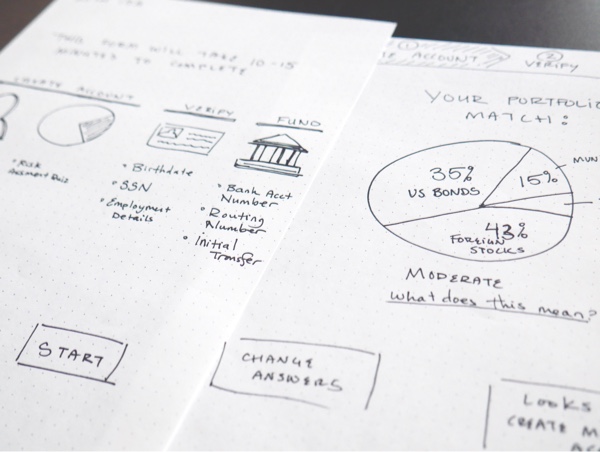 THIS FORM WILL TAKE 10-15
MINUTES TO COMPLETE
CREATE ACCOUNT
VERIFY
FUND
• Risk
Assment Quiz
• Birthdate
• SSN
• Employment
Details
• Bank Acct
Number
• Routing
Number
• Initial
Transfer
START
①
ACCOUNT
②
VERIFY
YOUR PORTFOLIO
MATCH:
35%
US BONDS
15%
MUN
43%
FOREIGN
STOCKS
MODERATE
What does this mean?
CHANGE
ANSWERS
LOOKS
CREATE M
AC